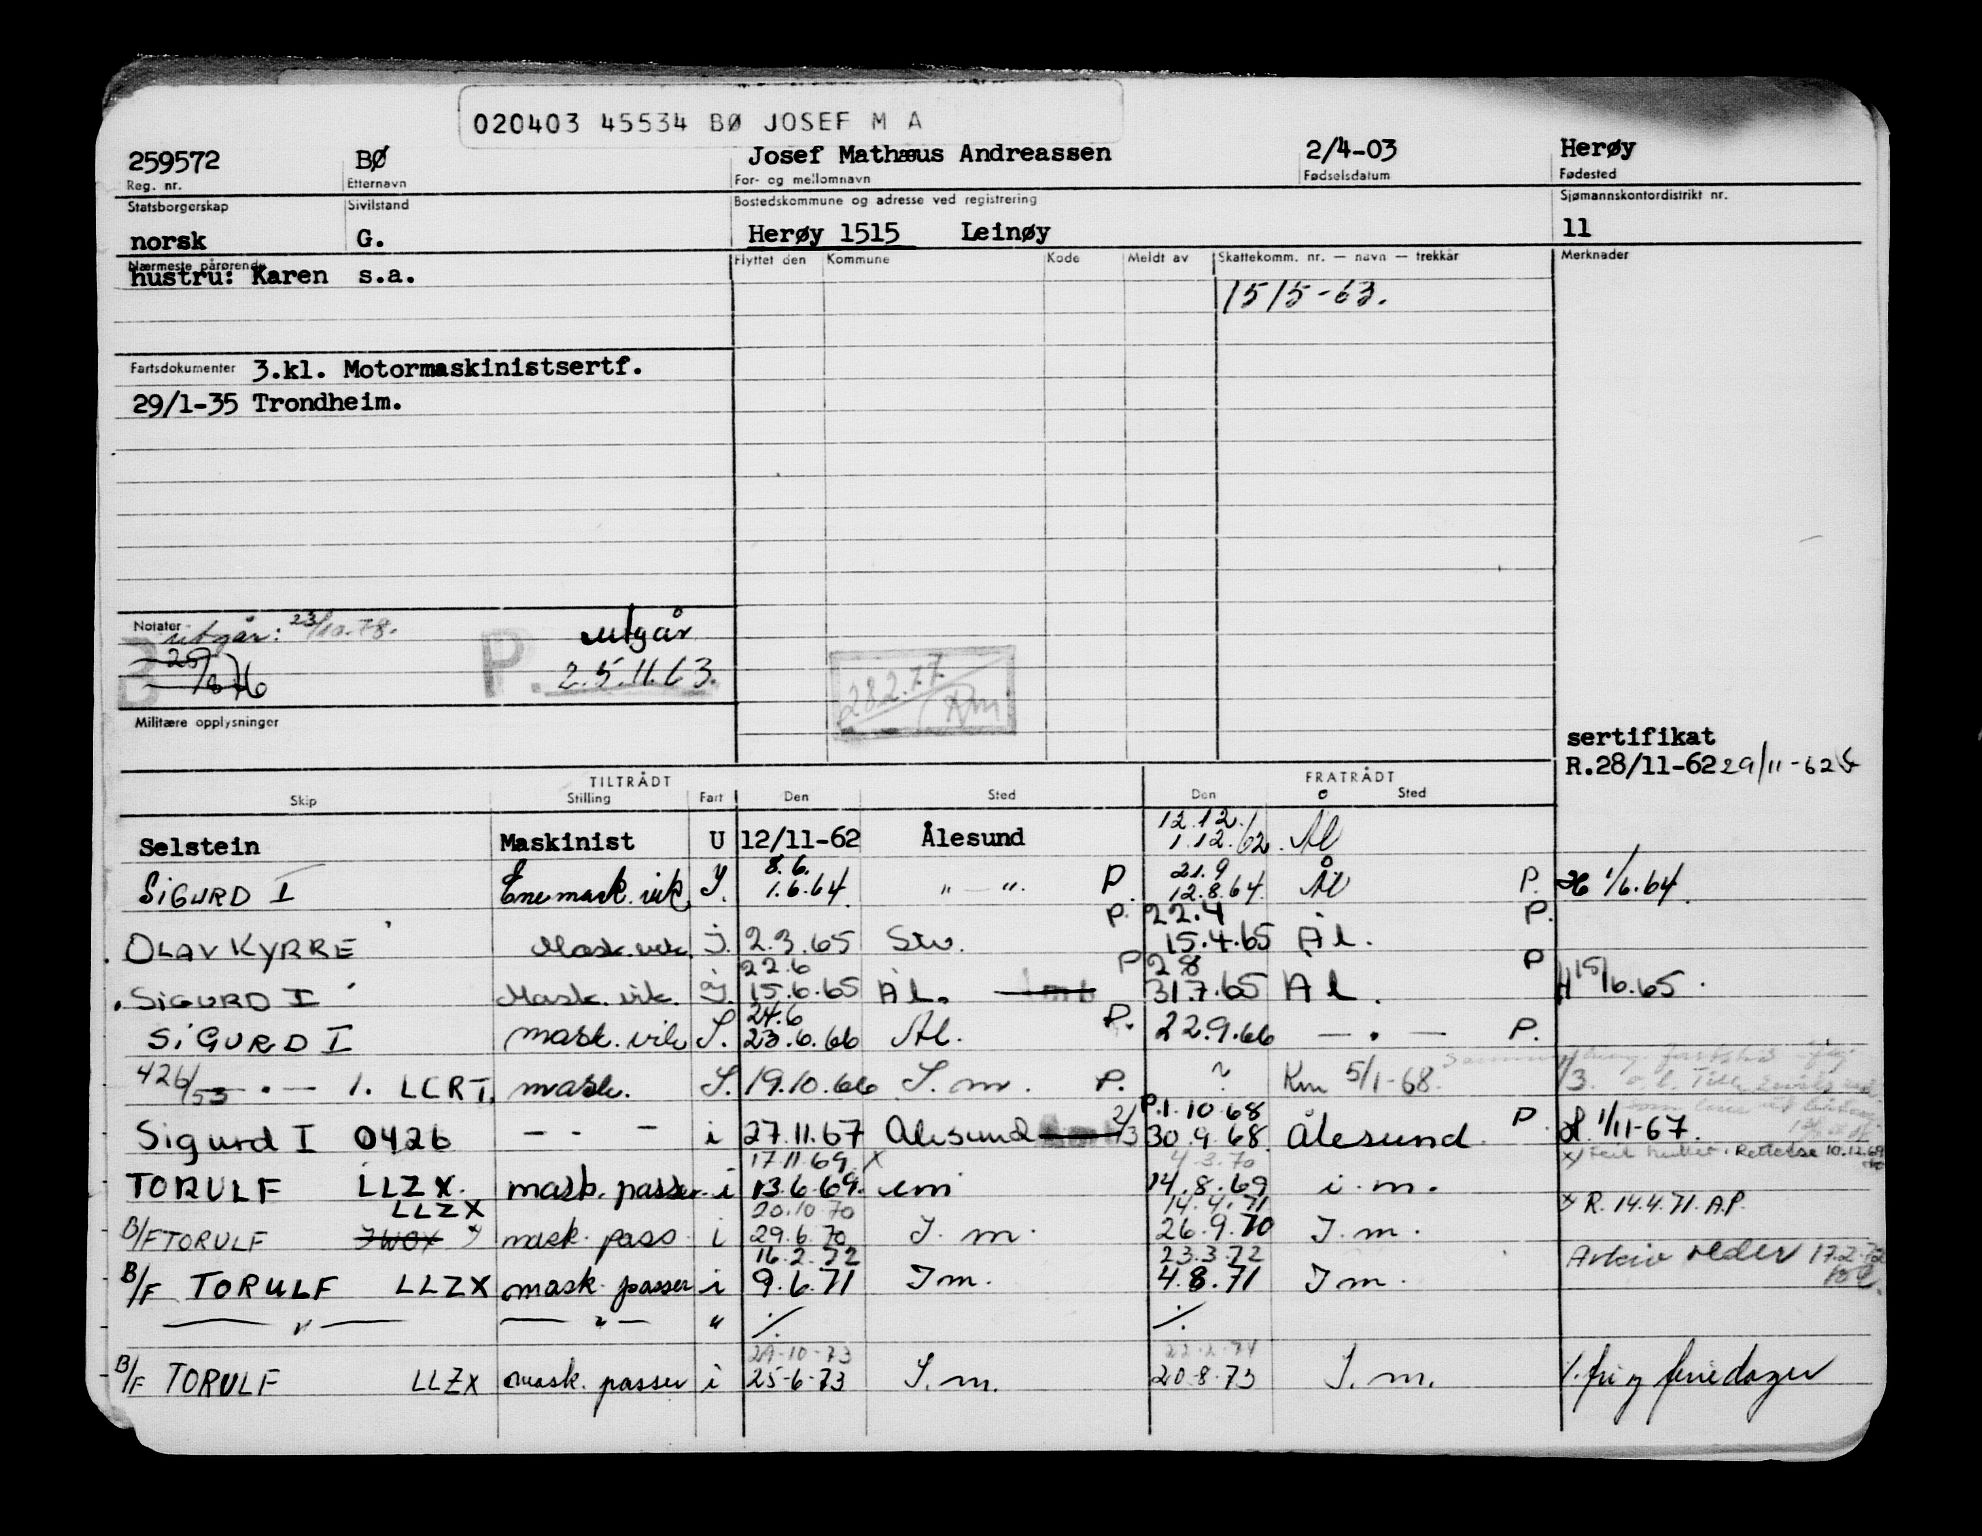 020403 45534 BØ JOSEF M A
259572 BØ Josef Mathæus Andreassen 2/4-03 Herøy
Reg. nr. Etternavn For- og mellomnavn Fødselsdatum Fødested
Statsborgerskap Sivilstand Bostedskommune og adresse ved registrering Sjømannskontordistrikt nr.
norsk G. Herøy 1515 Leinøy 11
Nærmeste pårørende Flyttet den Kommune Kode Meldt av Skattekomm. nr. — navn — trekkår Merknader
hustru: Karen s.a.
1515-63.
Fartsdokumenter 3.kl. Motormaskinistsertf.
29/1-35 Trondheim.
Notater
utgår: 23/10.78.
utgår
25/8 76
B P. 25.11.63.
282.77
Militære opplysninger
sertifikat
R.28/11-62 29/11-62
TILTRÅDT FRATRÅDT
Skip Stilling Fart Den Sted Den Sted
12.12.
Selstein Maskinist U 12/11-62 Ålesund 1.12./62. Ål
8.6. 21.9
SIGURD I Ene mask. vik. I. 1.6.64. " — ". P 12.8.64. Ål P. 1/6.64.
P. 22.4 P.
OLAV KYRRE Mask. vik. I. 2.3.65 Stv. 15.4.65 Ål.
22.6 P 28 P
SIGURD I Mask. vik. I. 15.6.65 Ål. 31.7.65 Ål. H 15/6.65.
24.6
SIGURD I mask. vik I. 23.6.66 Ål. P. 22.9.66 — . — P.
426/53 — . — 1. LCRT. mask. I. 19.10.66 I. m. P. ? Km 5/1-68.
P.1.10.68
Sigurd I 0426 — - — i 27.11.67 Ålesund 30.9.68 Ålesund P 1/11-67.
17.11.69 x 4.3.70 Rettelse 10.12.69
TORULF LLZX. mask. passer i 13.6.69. i m 14.8.69 i.m.
LLZX 20.10 70 14.4.71 x R. 14.4.71. A.P.
B/F TORULF mask. pass. i 29.6.70 I. m. 26.9.70 I. m.
16.2.72 23.3.72
B/F TORULF LLZX mask. passer i 9.6.71 I m. 4.8.71 I m.
— " — — " — " ./. ./.
29-10-73 22.2.74
B/F TORULF LLZX mask. passer i 25-6-73 I. m. 20-8-73 I. m. feriedager